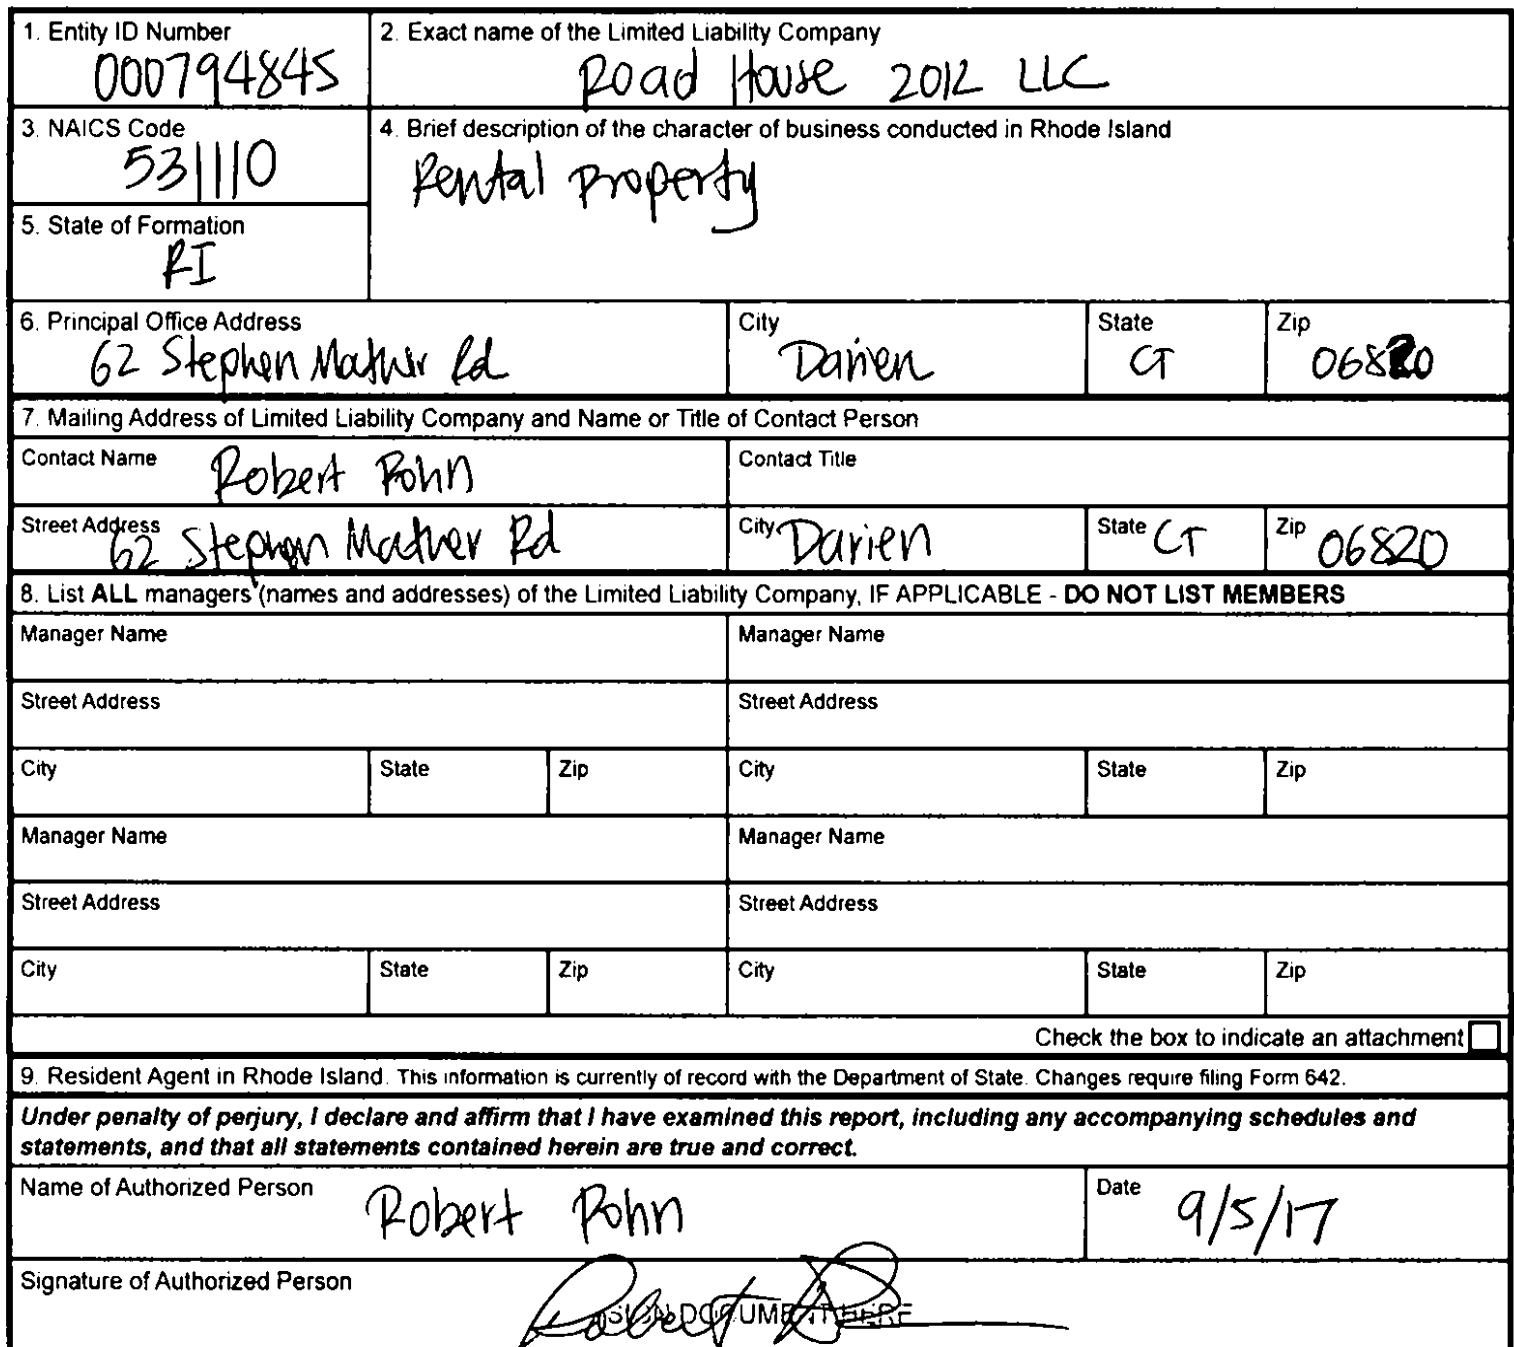 1. Entity ID Number
000794845
2. Exact name of the Limited Liability Company
Road House 2012 LLC
3. NAICS Code
531110
4. Brief description of the character of business conducted in Rhode Island
Rental Property
5. State of Formation
RI
6. Principal Office Address
62 Stephen Mather Rd
City
Darien
State
CT
Zip
06820
7. Mailing Address of Limited Liability Company and Name or Title of Contact Person
Contact Name Robert Rohn
Contact Title
Street Address 62 Stephen Mather Rd
City Darien
State CT
Zip 06820
8. List ALL managers (names and addresses) of the Limited Liability Company, IF APPLICABLE - DO NOT LIST MEMBERS
Manager Name
Manager Name
Street Address
Street Address
City State Zip City State Zip
Manager Name
Manager Name
Street Address
Street Address
City State Zip City State Zip
Check the box to indicate an attachment
9. Resident Agent in Rhode Island. This information is currently of record with the Department of State. Changes require filing Form 642.
Under penalty of perjury, I declare and affirm that I have examined this report, including any accompanying schedules and
statements, and that all statements contained herein are true and correct.
Name of Authorized Person Robert Rohn
Date 9/5/17
Signature of Authorized Person
SIGN DOCUMENT HERE
Robert